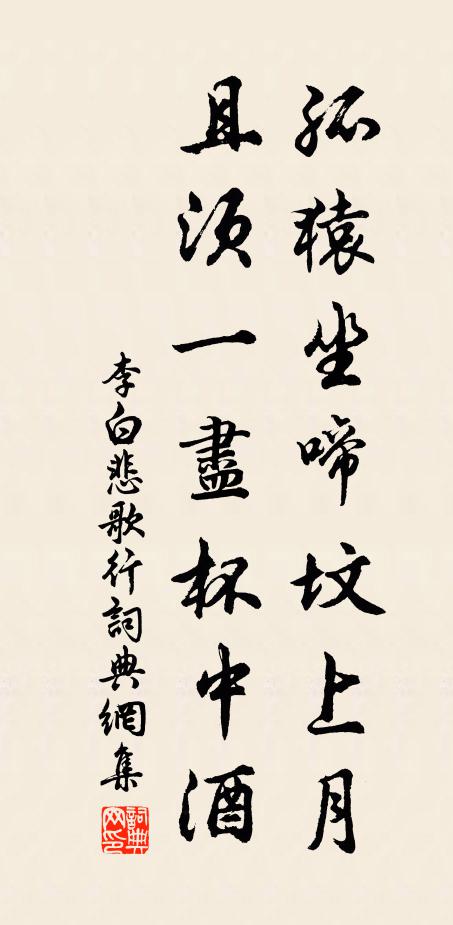 孤猿坐啼坟上月
且须一盡杯中酒
李白悲歌行詞典網集
詞典網印